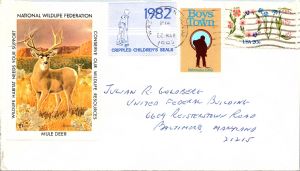 NATIONAL WILDLIFE FEDERATION
WILDLIFE HABITAT NEEDS YOUR SUPPORT
CONSERVE OUR WILDLIFE RESOURCES
MULE DEER
1982
CRIPPLED CHILDREN'S SEALS
Boys
Town
USA 20c
JULIAN R. GOLDBERG
UNITED FEDERAL BUILDING
6609 REISTERSTOWN ROAD
BALTIMORE, MARYLAND
21215